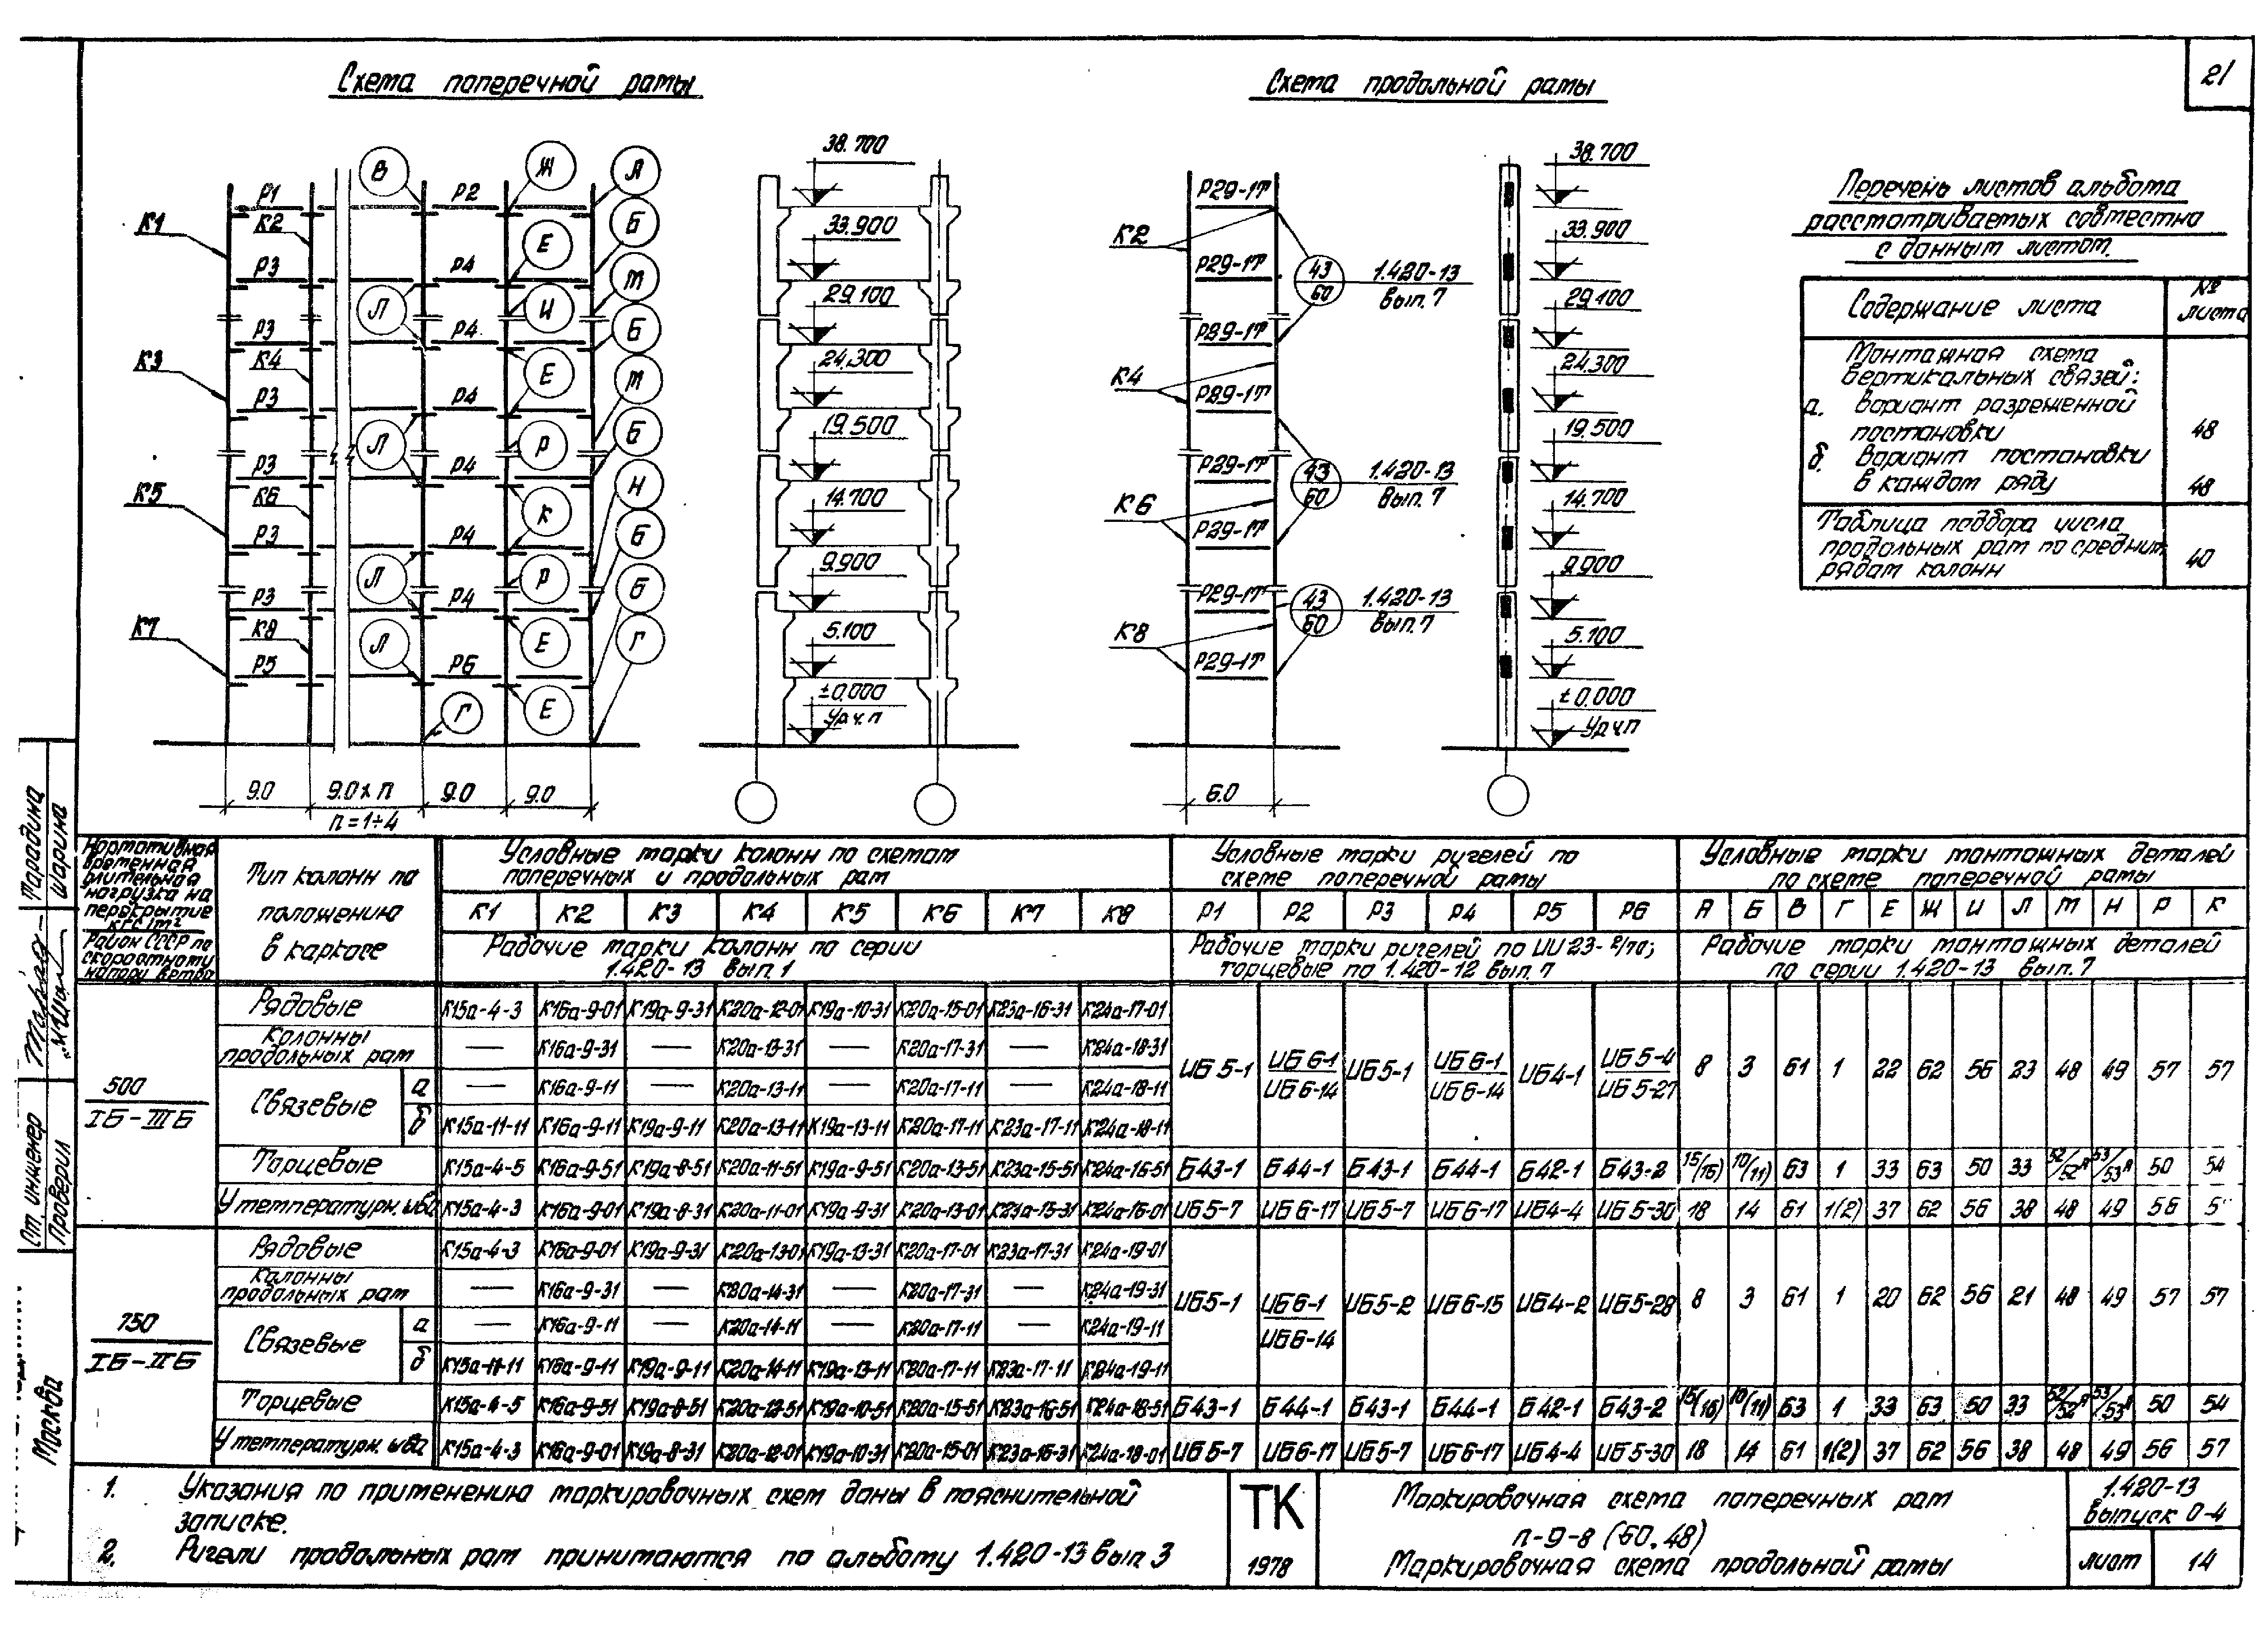 21
Схема поперечной рамы
Схема продольной рамы
Р1
К2
К1
Р3
Р3
К4
К3
Р3
Р3
К6
К5
Р3
Р3
К8
К7
Р5
В
Р2
Ж
А
Б
Е
Р4
М
Л
И
Р4
Б
Е
М
Р4
Б
Л
Р
Р4
Н
К
Б
Р4
Л
Р
Б
Р4
Е
Г
Л
Р6
Е
Г
9.0
9.0 х п
9.0
9.0
п = 1÷4
38.700
33.900
29.100
24.300
19.500
14.700
9.900
5.100
±0.000
Ур.ч.п
Р29-1т
К2
Р29-1т
43
60
1.420-13
вып. 7
Р29-1т
К4
Р29-1т
Р29-1т
43
60
1.420-13
вып. 7
К6
Р29-1т
Р29-1т
43
60
1.420-13
вып. 7
К8
Р29-1т
6.0
38.700
33.900
29.100
24.300
19.500
14.700
9.900
5.100
±0.000
Ур.ч.п
Перечень листов альбома
рассматриваемых совместно
с данным листом.
Содержание листа
№ листа
Монтажная схема
вертикальных связей:
а. вариант разреженной
постановки 48
б. вариант постановки
в каждом ряду 48
Таблица подбора числа
продольных рам по средним
рядам колонн 40
Нормативная
временная
длительная
нагрузка на
перекрытие
кгс/м²
Район СССР по
скоростному
напору ветра
Тип колонн по
положению
в каркасе
Условные марки колонн по схемам
поперечных и продольных рам
К1 К2 К3 К4 К5 К6 К7 К8
Рабочие марки колонн по серии
1.420-13 вып. 1
Условные марки ригелей по
схеме поперечной рамы
Р1 Р2 Р3 Р4 Р5 Р6
Рабочие марки ригелей по ИИ 23-2/70;
торцевые по 1.420-12 вып. 7
Условные марки монтажных деталей
по схеме поперечной рамы
А Б В Г Е Ж И Л М Н Р К
Рабочие марки монтажных деталей
по серии 1.420-13 вып. 7
500
IБ-IIIБ
Рядовые К15а-4-3 К16а-9-01 К19а-9-31 К20а-12-01 К19а-10-31 К20а-15-01 К23а-16-31 К24а-17-01
Колонны
продольных рам — К16а-9-31 — К20а-13-31 — К20а-17-31 — К24а-18-31
Связевые
а — К16а-9-11 — К20а-13-11 — К20а-17-11 — К24а-18-11
б К15а-11-11 К16а-9-11 К19а-9-11 К20а-13-11 К19а-13-11 К20а-17-11 К23а-17-11 К24а-18-11
ИБ5-1 ИБ6-1/ИБ6-14 ИБ5-1 ИБ6-1/ИБ6-14 ИБ4-1 ИБ5-4/ИБ5-27 8 3 61 1 22 62 56 23 48 49 57 57
Торцевые К15а-4-5 К16а-9-51 К19а-8-51 К20а-11-51 К19а-9-51 К20а-13-51 К23а-15-51 К24а-16-51 Б43-1 Б44-1 Б43-1 Б44-1 Б42-1 Б43-2 15/(16) 10/(11) 63 1 33 63 50 33 52/52А 53/53А 50 54
У температурн. шва К15а-4-3 К16а-9-01 К19а-8-31 К20а-11-01 К19а-9-31 К20а-13-01 К23а-15-31 К24а-16-01 ИБ5-7 ИБ6-17 ИБ5-7 ИБ6-17 ИБ4-4 ИБ5-30 18 14 61 1(2) 37 62 56 38 48 49 56
750
IБ-IIБ
Рядовые К15а-4-3 К16а-9-01 К19а-9-31 К20а-13-01 К19а-13-31 К20а-17-01 К23а-17-31 К24а-19-01
Колонны
продольных рам — К16а-9-31 — К20а-14-31 — К20а-17-31 — К24а-19-31
Связевые
а — К16а-9-11 — К20а-14-11 — К20а-17-11 — К24а-19-11
б К15а-11-11 К16а-9-11 К19а-9-11 К20а-14-11 К19а-13-11 К20а-17-11 К23а-17-11 К24а-19-11
ИБ5-1 ИБ6-1/ИБ6-14 ИБ5-2 ИБ6-15 ИБ4-2 ИБ5-28 8 3 61 1 20 62 56 21 48 49 57 57
Торцевые К15а-4-5 К16а-9-51 К19а-8-51 К20а-12-51 К19а-10-51 К20а-15-51 К23а-16-51 К24а-18-51 Б43-1 Б44-1 Б43-1 Б44-1 Б42-1 Б43-2 15/(16) 10/(11) 63 1 33 63 50 33 52/52А 53/53А 50 54
У температурн. шва К15а-4-3 К16а-9-01 К19а-8-31 К20а-12-01 К19а-10-31 К20а-15-01 К23а-16-31 К24а-18-01 ИБ5-7 ИБ6-17 ИБ5-7 ИБ6-17 ИБ4-4 ИБ5-30 18 14 61 1(2) 37 62 56 38 48 49 56 57
1. Указания по применению маркировочных схем даны в пояснительной
записке.
2. Ригели продольных рам принимаются по альбому 1.420-13 вып. 3
ТК
1978
Маркировочная схема поперечных рам
п-9-8 (60.48)
Маркировочная схема продольной рамы
1.420-13
выпуск 0-4
лист 14
Ст. инженер
Проверил
Тарадина
Шарина
Москва